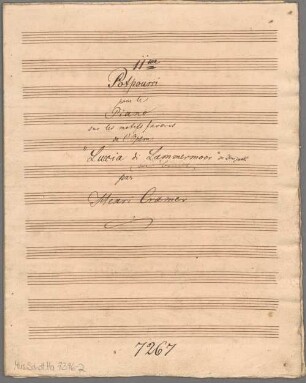 11me
Potpourri
pour le
Piano
sur les motifs favoris
de l'Opéra
"Lucia di Lammermoor" de Donizetti
par
Henri Cramer
7267